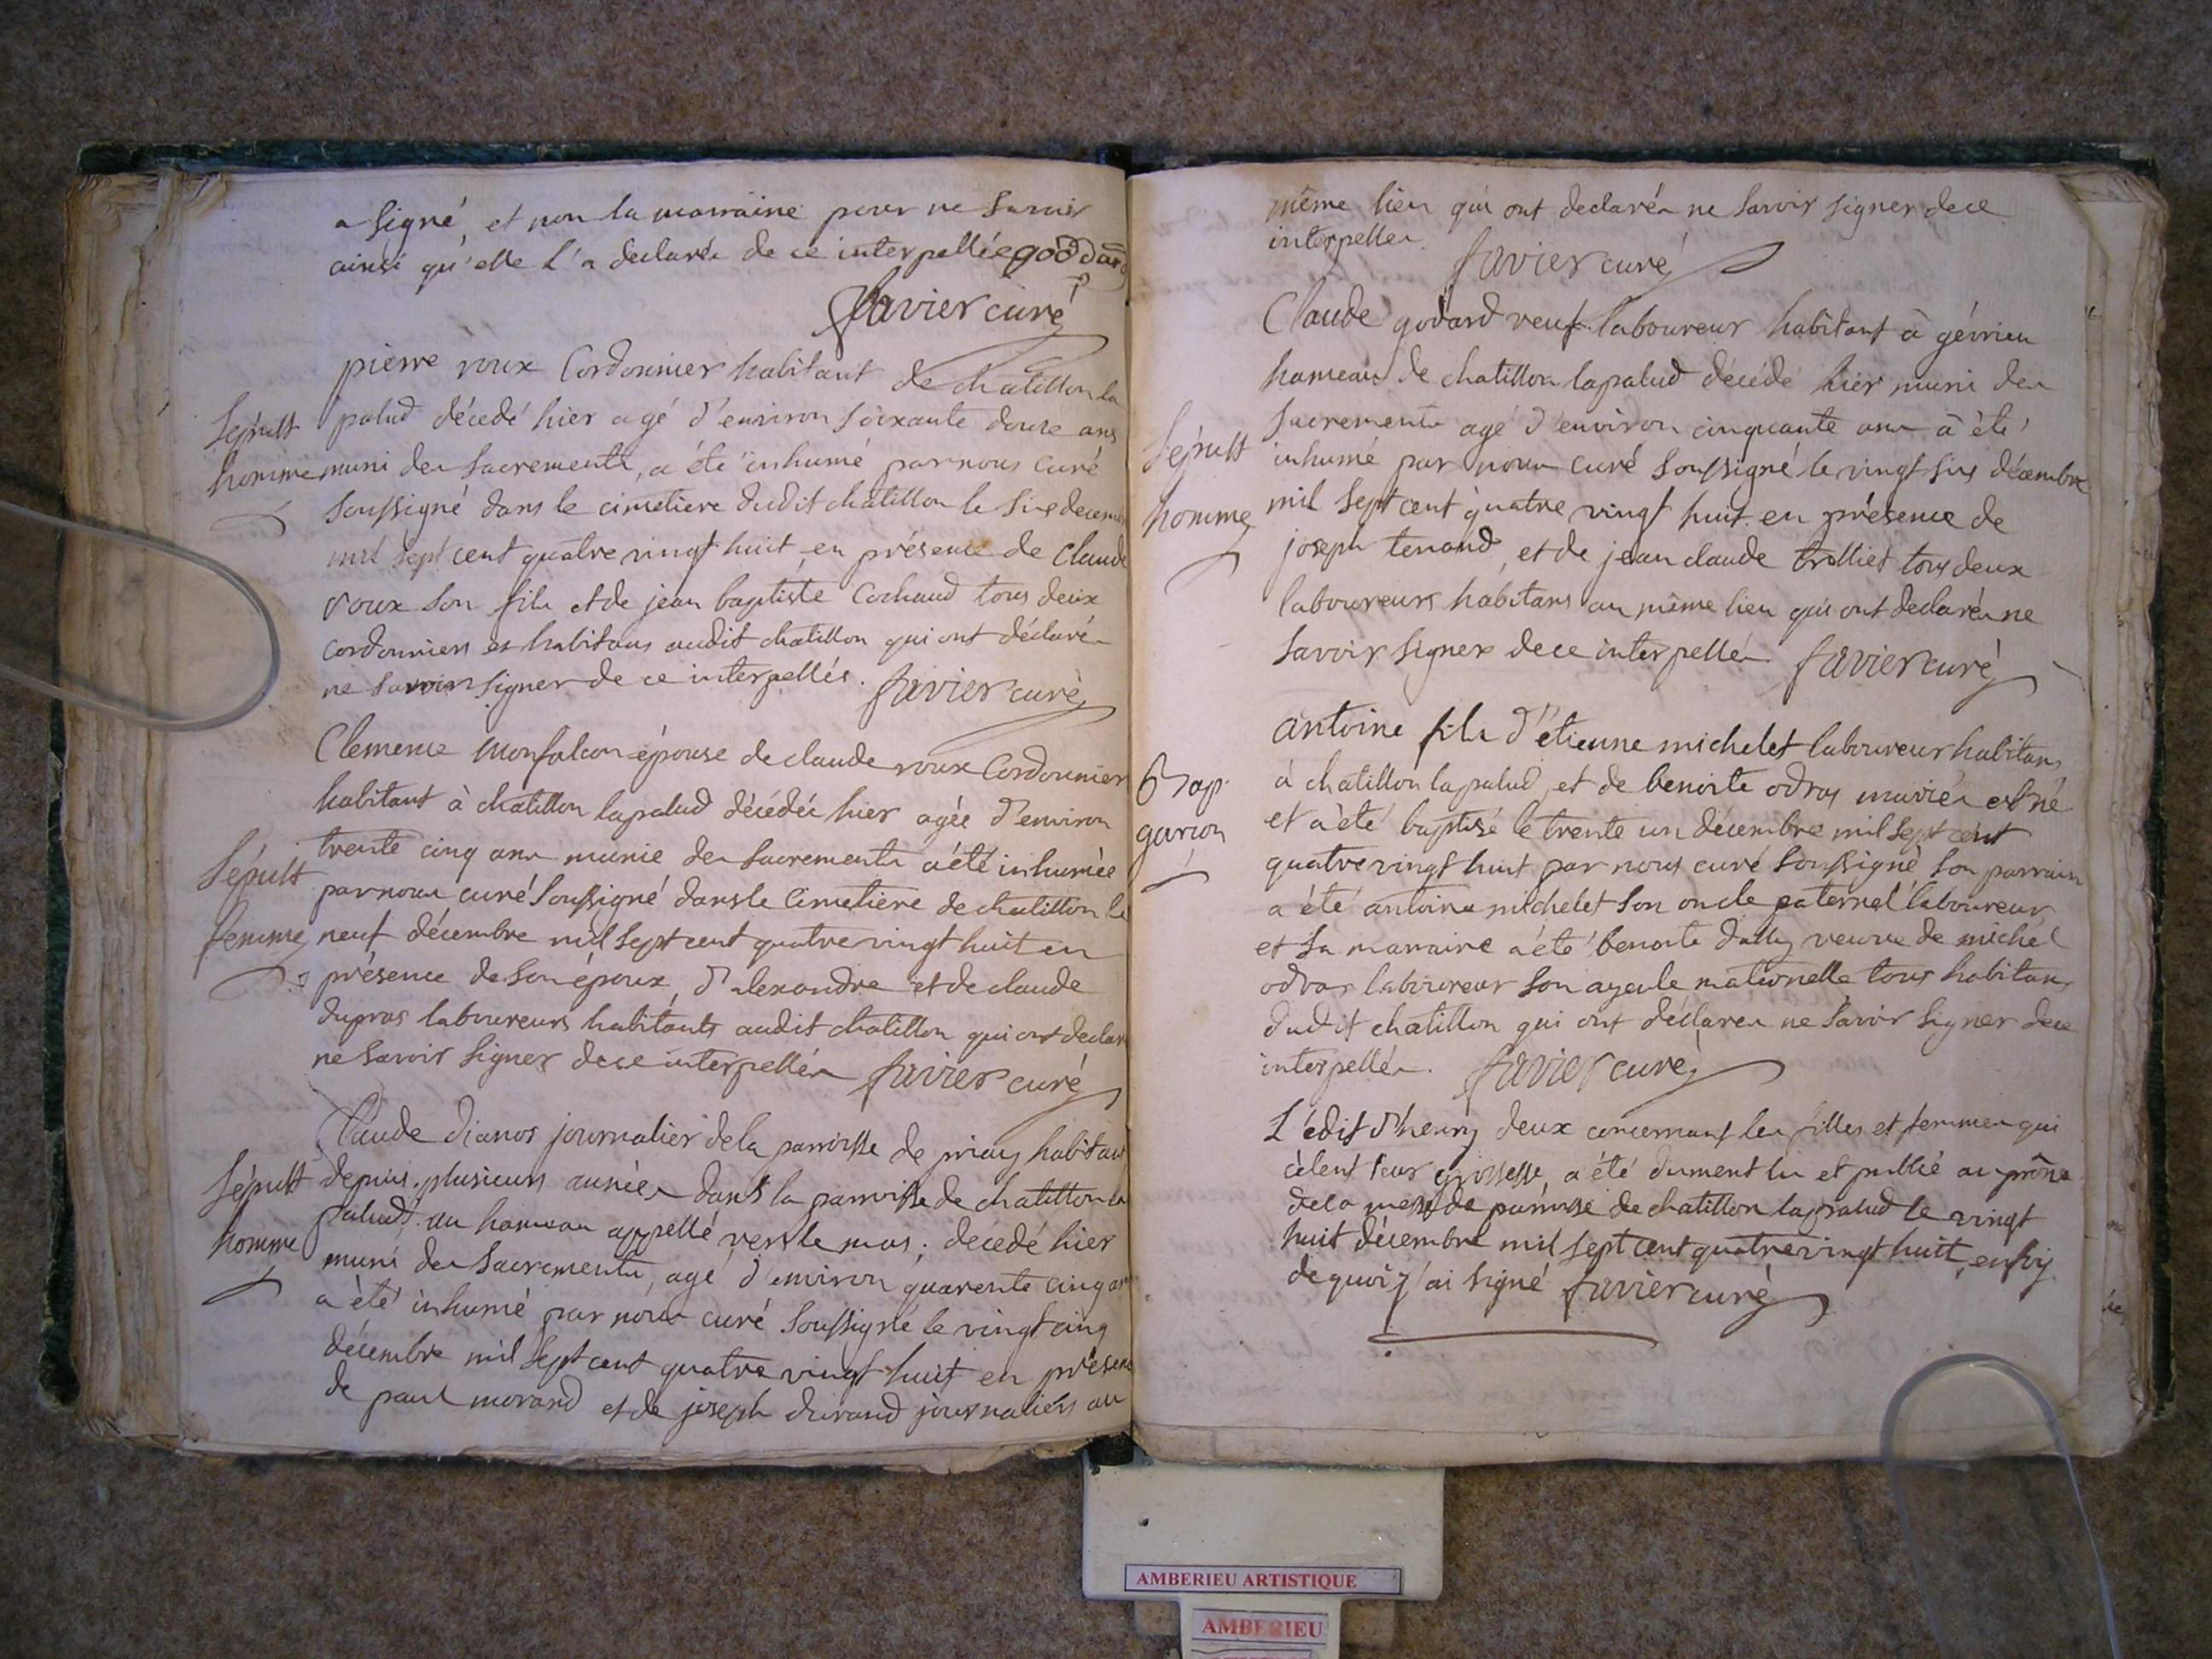 a signé, et non la marraine pour ne savoir
ainsi qu'elle l'a declaré de ce interpellée godard
favier curé
pierre roux Cordonnier habitant de chatillon la
Sépult
palud décedé hier agé d'environ soixante douze ans
homme
muni des sacrements, a été inhumé par nous curé
soussigné dans le cimetiere dudit chatillon le six decembre
mil sept cent quatre vingt huit en présence de Claude
roux son fils et de jean baptiste Cochaud tous deux
cordonniers et habitans audit chatillon qui ont déclarés
ne savoir signer de ce interpellés. favier curé
Clemence Monfalcon épouse de claude roux Cordonnier
habitant à chatillon lapalud décédée hier agée d'environ
trente cinq ans munie des sacrements a été inhumée
Sépult
par nous curé soussigné dans le Cimetiere de chatillon le
femme
neuf décembre mil sept cent quatre vingt huit en
présence de son époux, d'alexandre et de claude
dupras laboureurs habitants audit chatillon qui ont declaré
ne savoir signer de ce interpellés favier curé
Claude dianos journalier de la parroisse de priay habitant
Sépult
depuis plusieurs années dans la parroisse de chatillon la
palud au hameau appellé vers le mas; decedé hier
homme
muni des sacrements, agé d'environ quarente cinq ans
a été inhumé par nous curé soussigné le vingt cinq
décembre mil sept cent quatre vingt huit en présence
de paul morand et de joseph durand journaliers au
même lieu qui ont declarés ne savoir signer de ce
interpellés. favier curé
Claude godard veuf laboureur habitant à gévrieu
hameau de chatillon lapalud décédé hier muni des
sacrements agé d'environ cinquante ans a été
Sépult
inhumé par nous curé soussigné le vingt six décembre
homme
mil sept cent quatre vingt huit en présence de
joseph tenand, et de jean claude trolliet tous deux
laboureurs habitans au même lieu qui ont declarés ne
savoir signer de ce interpellés favier curé
antoine fils d'étienne michelet laboureur habitans
Bap.
à chatillon lapalud, et de benoite odras mariés est né
garçon
et a été baptisé le trente un décembre mil sept cent
quatre vingt huit par nous curé soussigné son parrain
a été antoine michelet son oncle paternel laboureur
et sa marraine a été benoite dally veuve de michel
odras laboureur son ayeule maternelle tous habitans
dudit chatillon qui ont déclarés ne savoir signer de ce
interpellés. favier curé
L'édit d'henry deux concernant les filles et femmes qui
cèlent leur grossesse, a été dument lu et publié au prône
de la messe de parroisse de chatillon lapalud le vingt
huit décembre mil sept cent quatre vingt huit, en foy
de quoi j'ai signé favier curé
AMBERIEU ARTISTIQUE
AMBERIEU